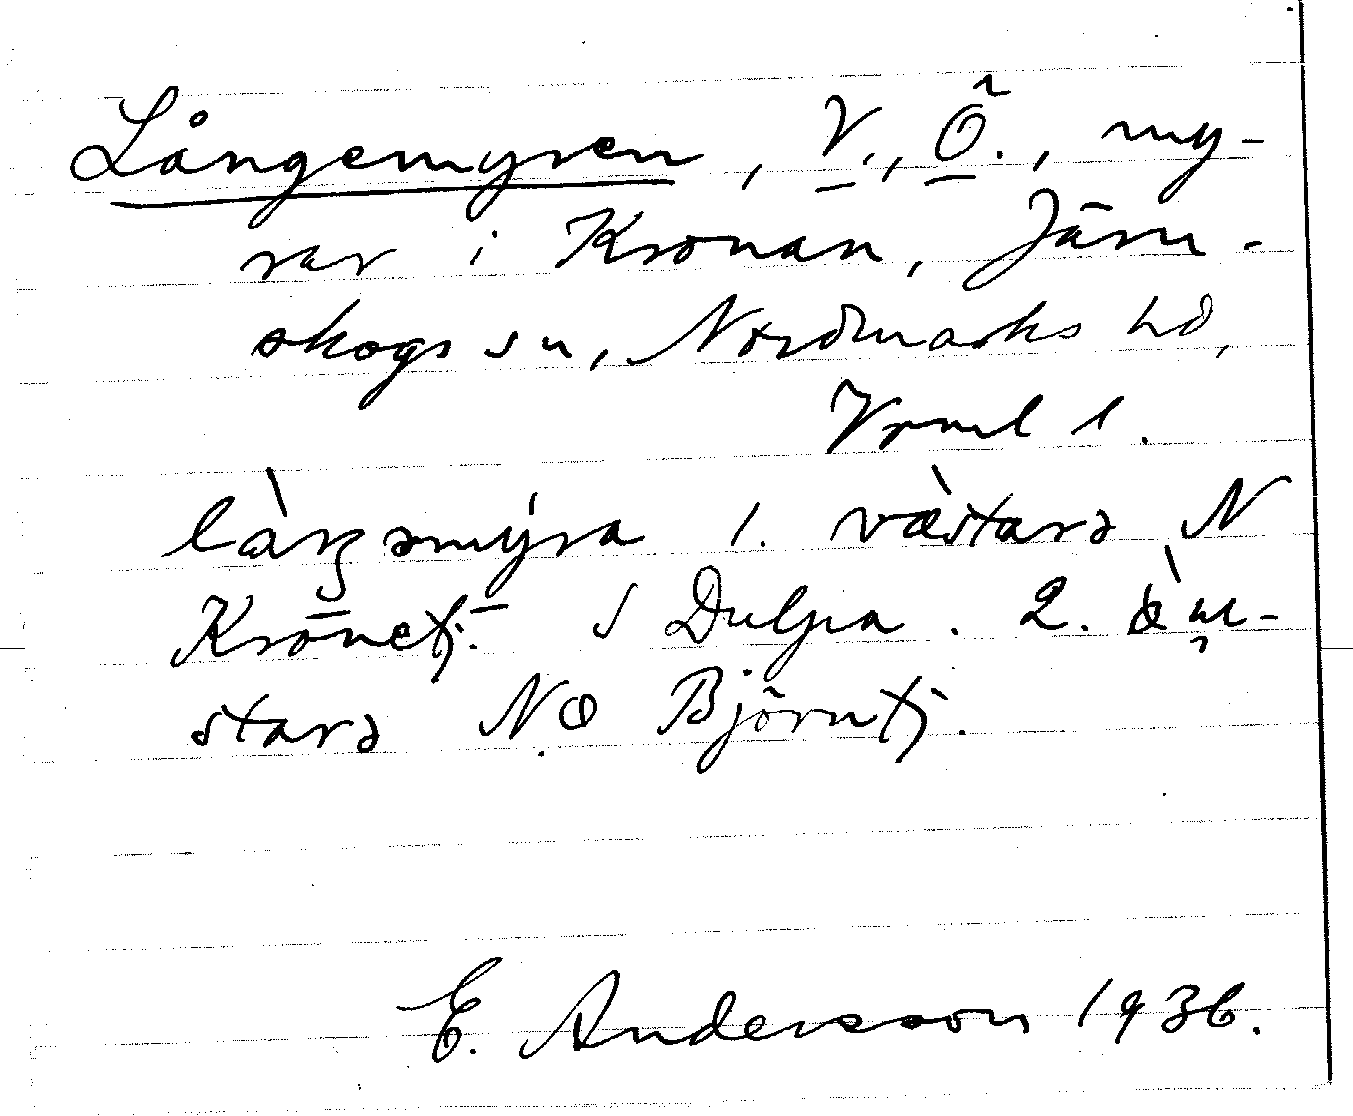 Långemyren, V., Ö., my-
rar i Kronan, Järn-
skogs sn, Nordmarks hd,
Vrml l.
làŋəmýra 1. vàstarə N
Krönetj. S Dulpa. 2. 
starə NO Björntj.
E. Andersson 1936.